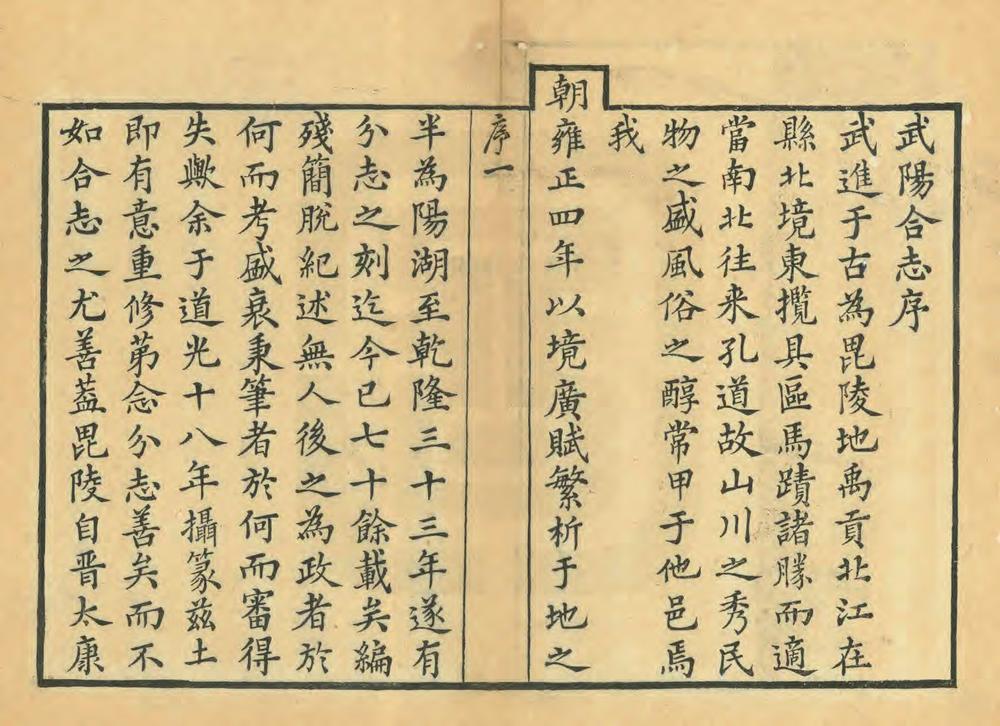 武陽合志序
武進于古為毘陵地禹貢北江在
縣北境東攬具區馬蹟諸勝而適
當南北往来孔道故山川之秀民
物之盛風俗之醇常甲于他邑焉
我
朝雍正四年以境廣賦繁析于地之
序一
半為陽湖至乾隆三十三年遂有
分志之刻迄今已七十餘載矣編
殘簡脫紀述無人後之為政者於
何而考盛衰秉筆者於何而審得
失歟余于道光十八年攝篆茲土
即有意重修第念分志善矣而不
如合志之尤善葢毘陵自晋太康